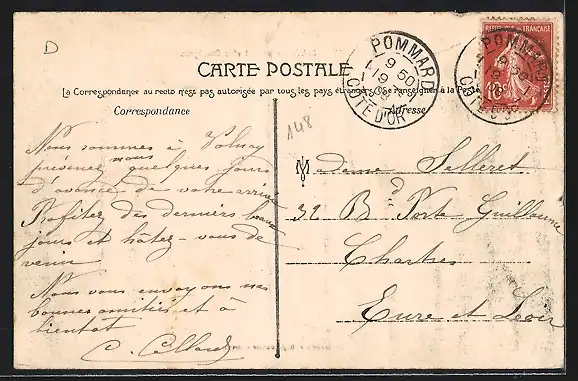 D
CARTE POSTALE
La Correspondance au recto n'est pas autorisée par tous les pays étrangers (Se renseigner à la Poste
Correspondance
Adresse
POMMARD
9 50
19-9
09
COTE D'OR
POMMARD
9 50
COTE D'OR
REPUBLIQUE FRANCAISE
10
148
Nous sommes à Volnay
prévenez nous quelques jours
d'avance de votre arrivée
Profitez des derniers beaux
jours et hâtez-vous de
venir
Nous vous envoyons nos
bonnes amitiés et à
bientot
C.
Madame Selleret
32 Bd Porte Guillaume
Chartres
Eure et Loir